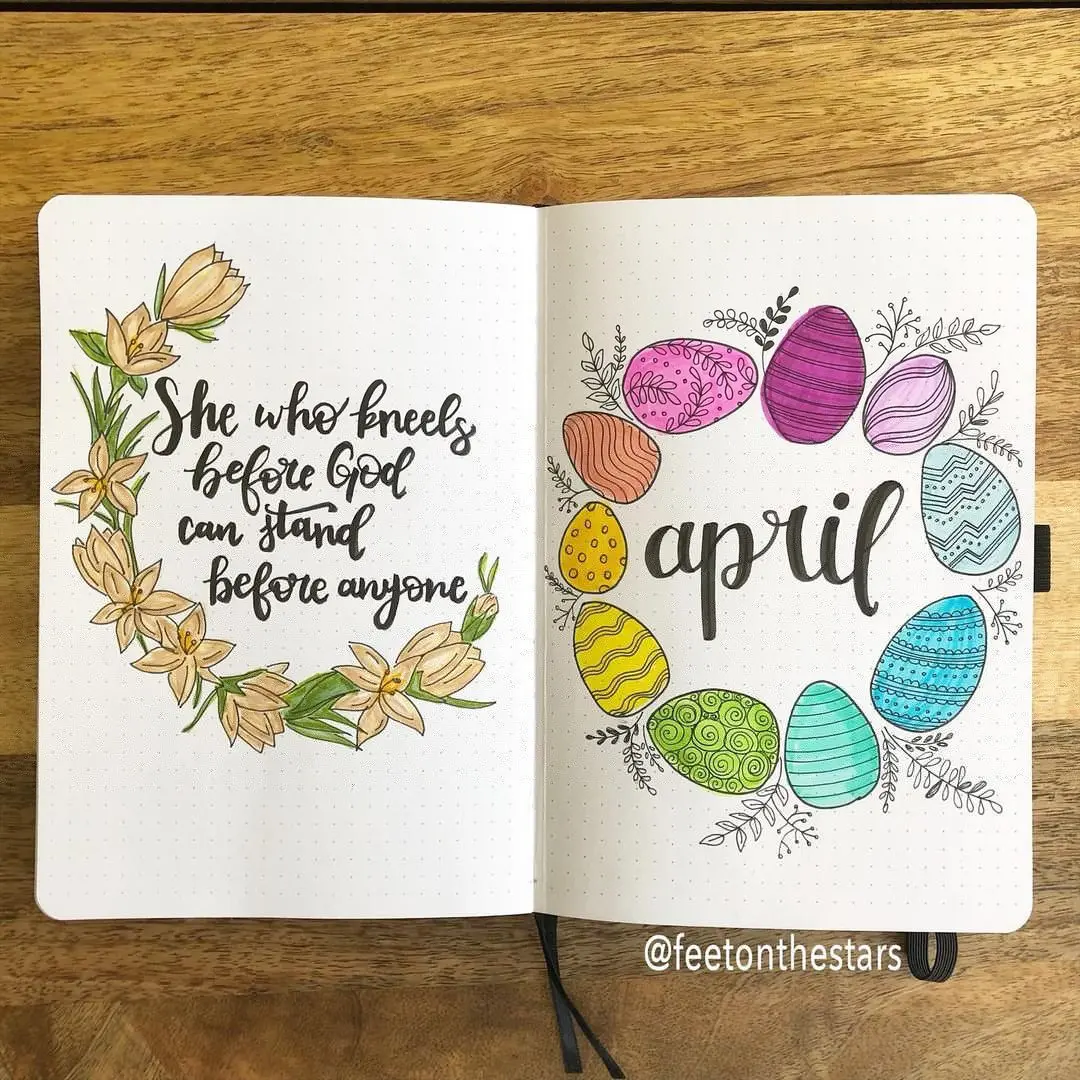 She who kneels
before God
can stand
before anyone
april
@feetonthestars